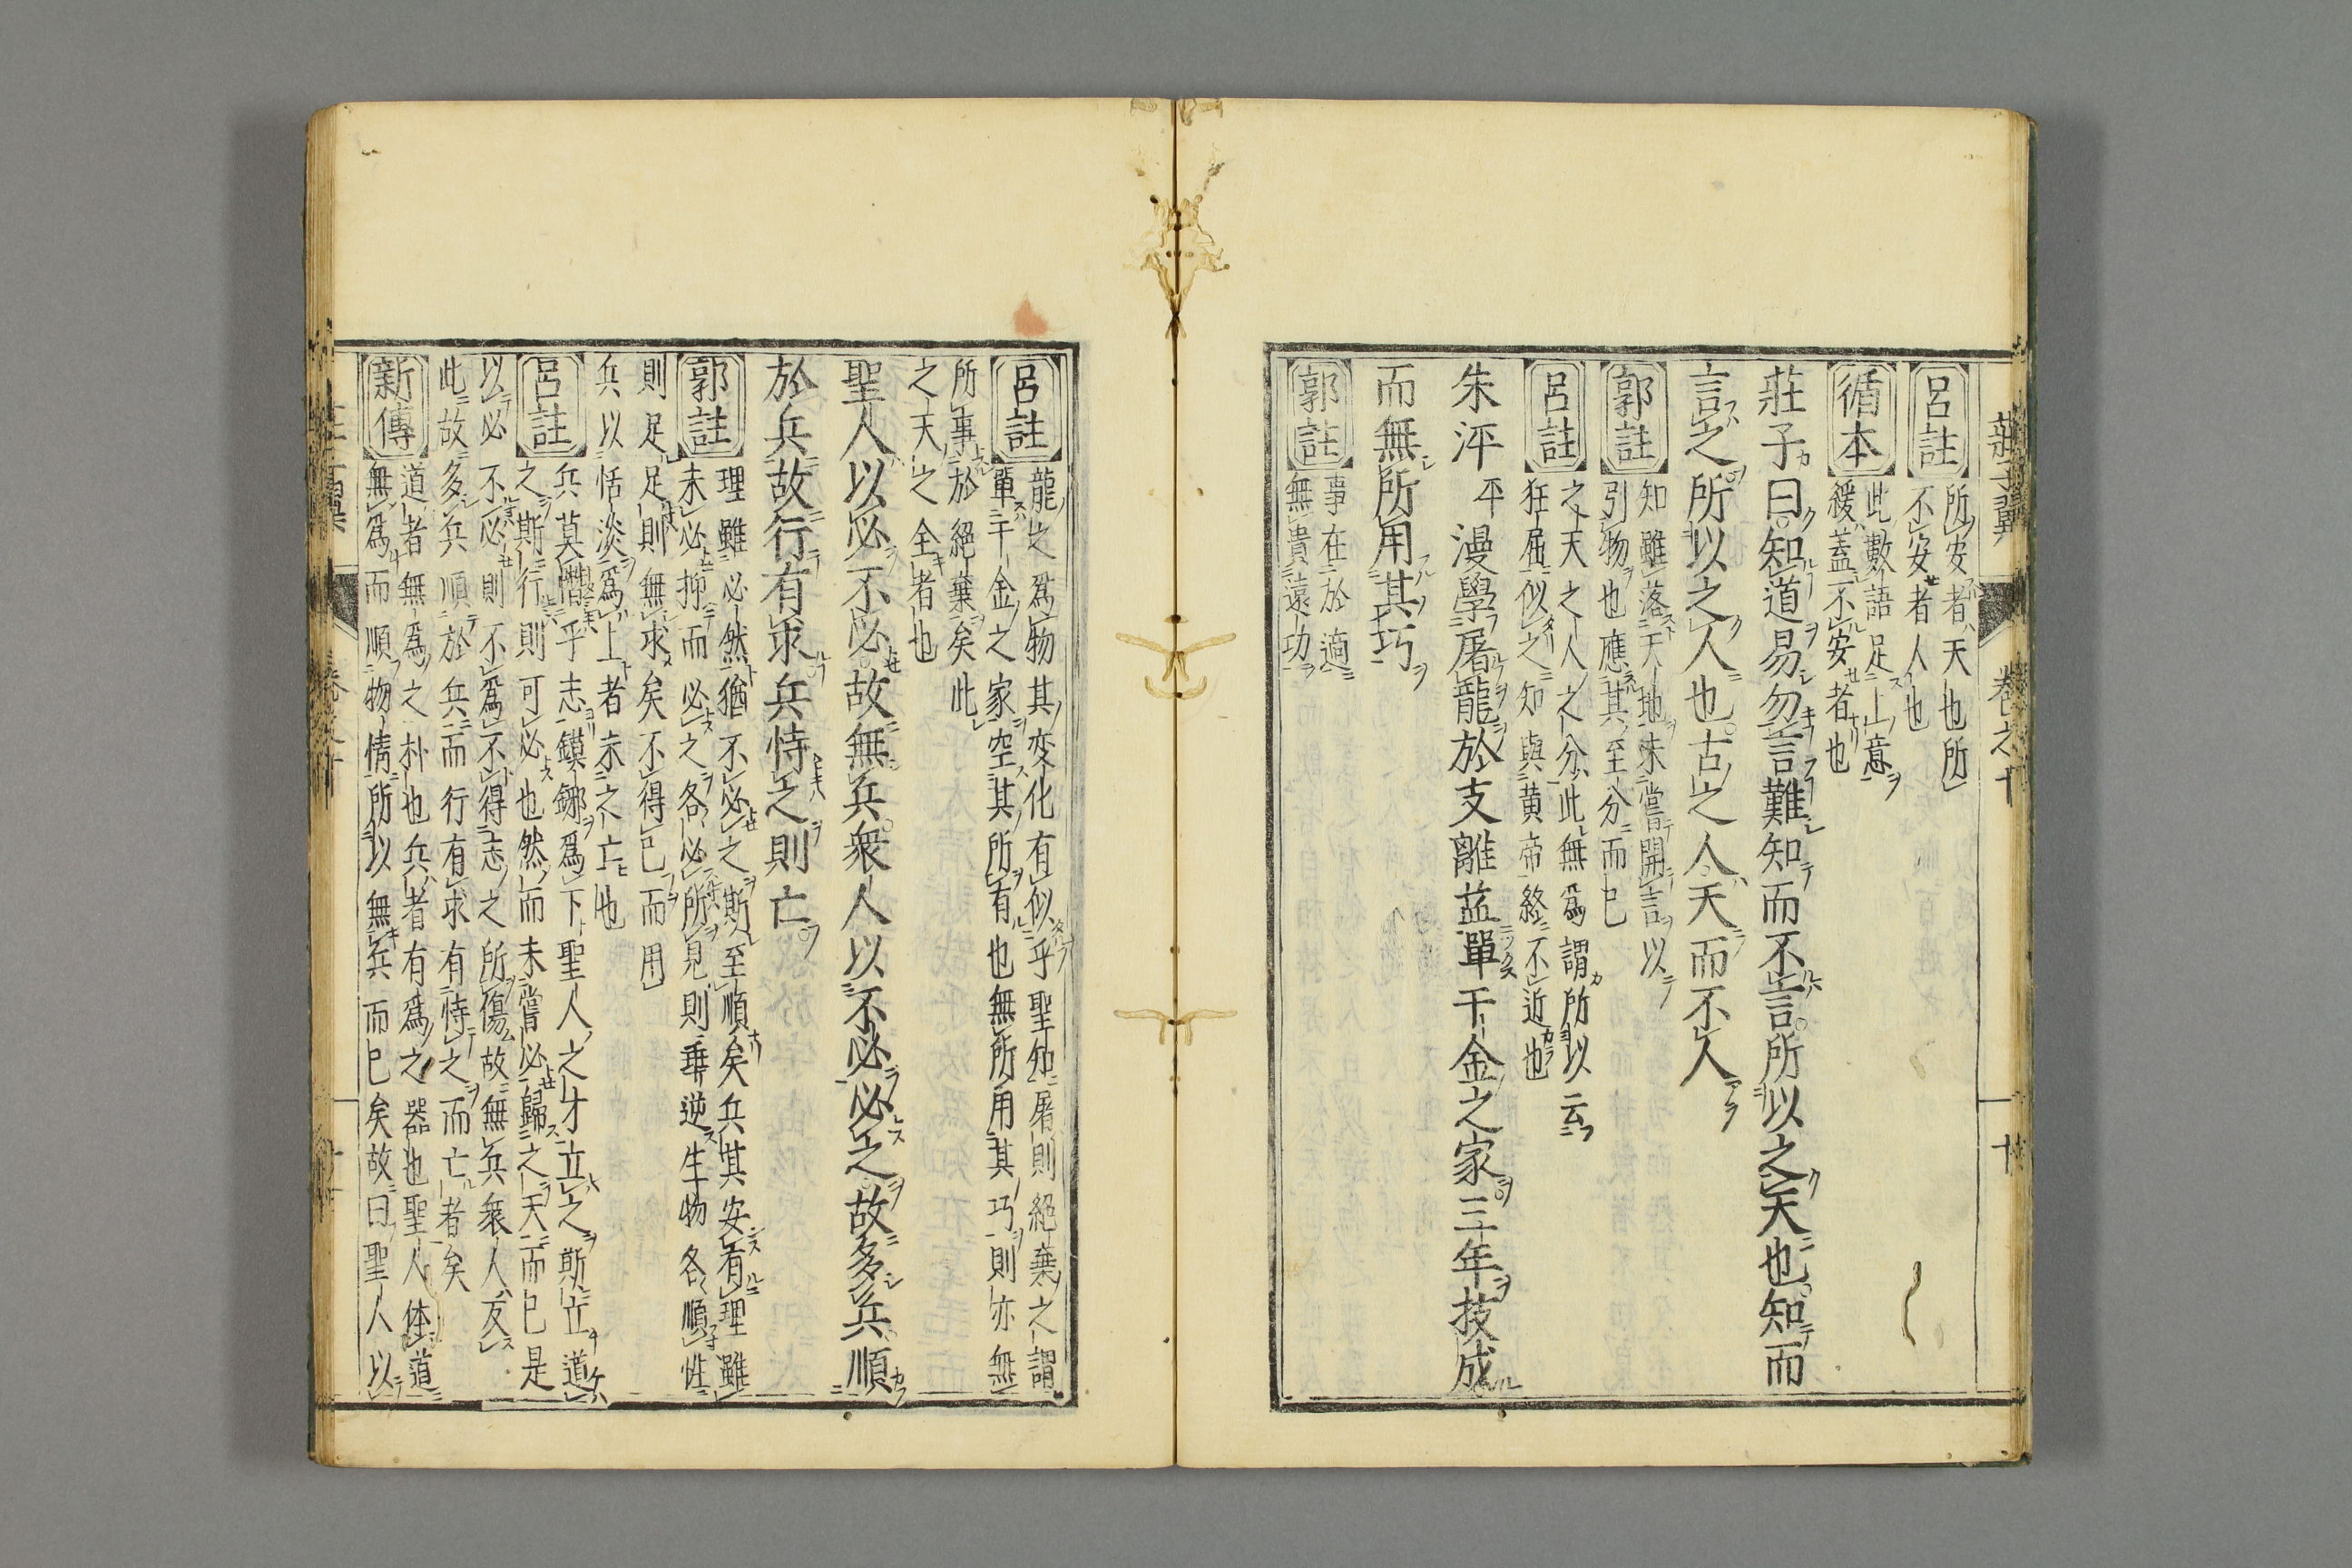 莊子翼 卷之十 十
呂註 所安者天也所
不安者人也
循本 此數語足上意
緩蓋不安者也
莊子曰知道易勿言難知而不言所以之天也知而
言之所以之人也古之人天而不人
郭註 知雖落天地未嘗開言以
引物也應其至分而已
呂註 之天之人之分此無爲謂所以云
狂屈似之知與黄帝終不近也
朱泙 平 漫學屠龍於支離益單千金之家三年技成
而無所用其巧
郭註 事在於適
無貴遠功
呂註 龍之爲物其変化有似乎聖知屠則絕棄之謂
單千金之家空其所有也無所用其巧則亦無
所事於絕棄矣此
之天之全者也
聖人以必不必故無兵衆人以不必必之故多兵順
於兵故行有求兵恃之則亡
郭註 理雖必然猶不必之斯至順矣兵其安有理雖
未必抑而必之各必所見則乖逆生物各順性
則足足則無求矣不得已而用
兵以恬淡爲上者未之亡也
呂註 兵莫憯乎志鏌鋣爲下聖人之才立之斯立道
之斯行則可必也然而未嘗必歸之天而已是
以必不必則不爲不得志之所傷故無兵衆人反
此故多兵順於兵而行有求有恃之而亡者矣
新傳 道者無爲之朴也兵者有爲之器也聖人体道
無爲而順物情所以無兵而已矣故曰聖人以